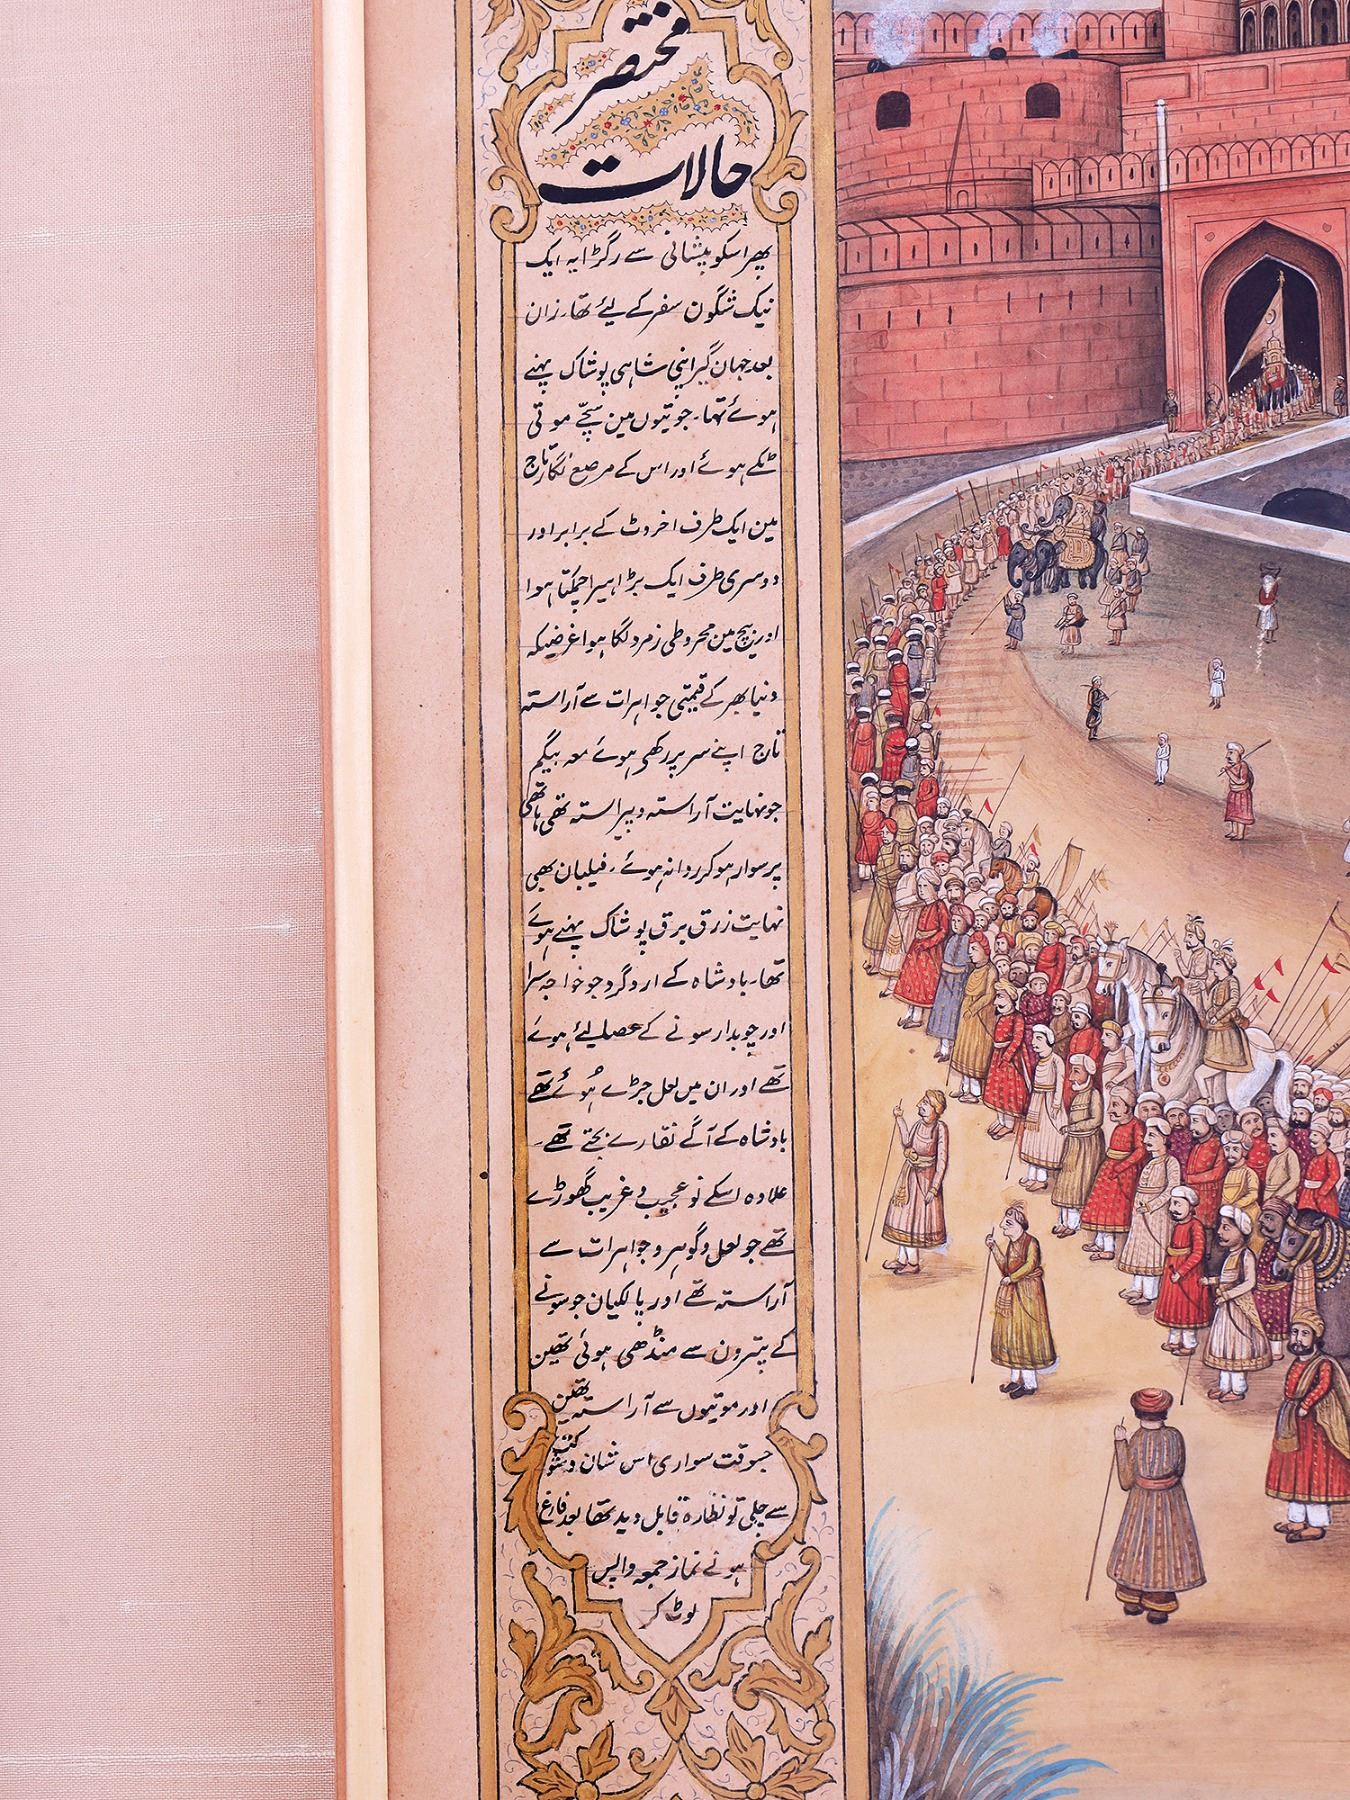 مختصر
حالات
پھر اسکو پیشانی سے رگڑا یہ ایک
نیک شگون سفر کے لیئے تھا۔ زان
بعد جہان گیر اپنی شاہی پوشاک پہنے
ہوئے تھا۔ جوتیوں مین سچّے موتی
ٹکے ہوئے اور اس کے مرصع نگار تاج
مین ایک طرف اخروٹ کے برابر اور
دوسری طرف ایک بڑا ہیرا چمکتا ہوا
اور بیچ مین مخروطی زمرد لگا ہوا غرضیکہ
دنیا بھر کے قیمتی جواہرات سے آراستہ
تاج اپنے سر پر رکھی ہوئے معہ بیگم
جو نہایت آراستہ و پیراستہ تھی ہاتھی
پر سوار ہو کر روانہ ہوئے۔ فیلبان بھی
نہایت زرق برق پوشاک پہنے ہوئے
تھا۔ بادشاہ کے ارد گرد جو خواجہ سرا
اور چوبدار سونے کے عصا لیئے ہوئے
تھے اور ان میں لعل جڑے ہُوئے تھے
بادشاہ کے آگے نقارے بجتے تھے۔
علاوہ اسکے نو عجیب و غریب گھوڑے
تھے جو لعل و گوہر و جواہرات سے
آراستہ تھے اور پالکیان جو سونے
کے پترون سے منڈھی ہوئی تھین
اور موتیوں سے آراستہ تھین
جسوقت سواری اس شان و شوکت
سے چلی تو نظارہ قابل دید تھا بعد فارغ
ہونے نماز جمعہ واپس
لوٹ کر